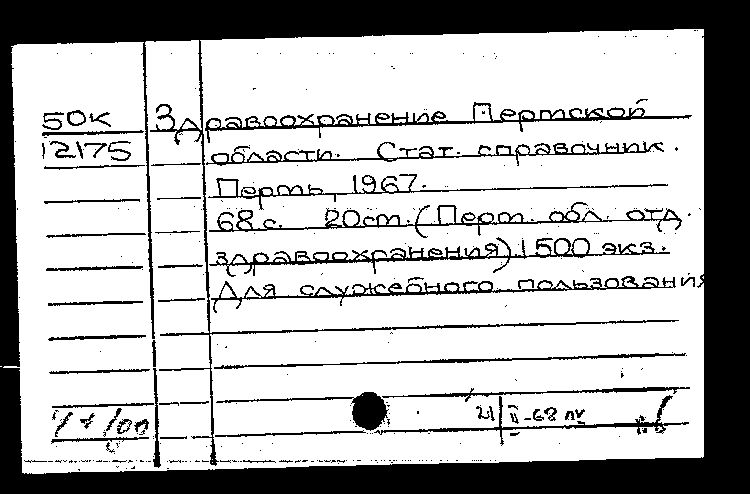 50к Здравоохранение Пермской
12175 области. Стат. справочник.
Пермь, 1967.
68 с. 20 см. (Перм. обл. отд.
здравоохранения) 1500 экз.
Для служебного пользования
21/II-68